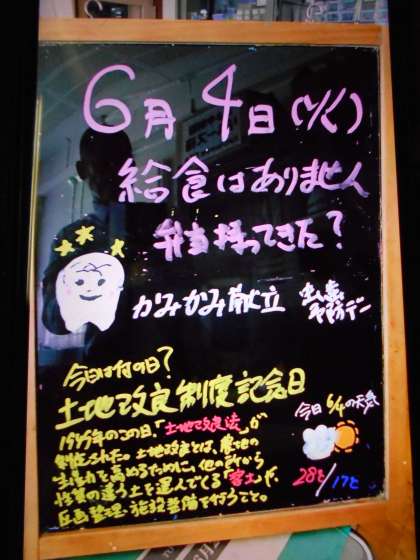 6月4日(火)
給食はありません
弁当持ってきた?
かみかみ献立 虫歯予防デー
今日は何の日?
土地改良制度記念日
1949年のこの日、「土地改良法」が
制定された。土地改良とは、農地の
生産力を高めるために、他の所から
性質の違う土を運んでくる「客土」や、
区画整理・施設整備を行うこと。
今日6/4の天気
28℃/17℃